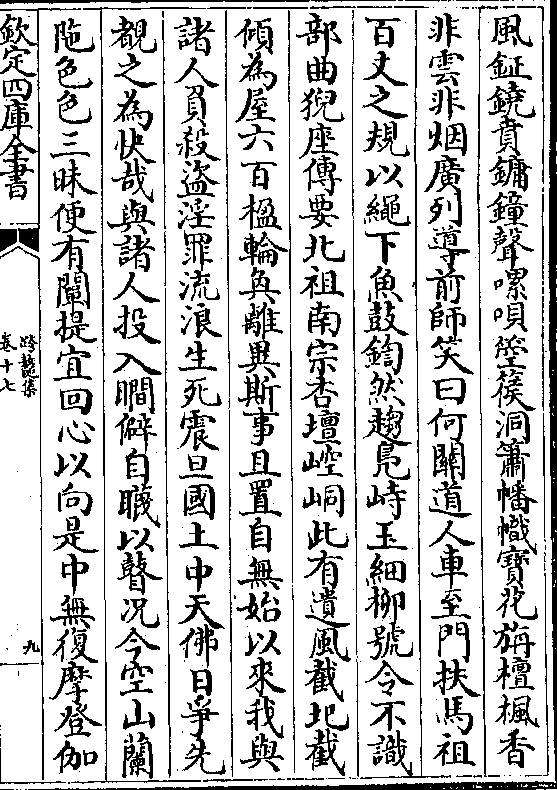 風鉦鐃賁鏞鐘聲嘹唄箜篌洞簫幡幟寶花旃檀楓香
非雲非烟廣列導前師笑曰何關道人車至門扶馬祖
百丈之規以繩下魚鼓鍧然趨鳬峙玉細栁號令不識
部曲猊座傳要北祖南宗杏壇崆峒此有遺風截圯截
傾為屋六百楹輪奐離異斯事且置自無始以來我與
諸人負殺盗淫罪流浪生死震旦國土中天佛日爭先
覩之為快哉與諸人投入瞷僻自職以瞽况今空山蘭
陁色色三昧便有闡提宜回心以向是中無復摩登伽
欽定四庫全書
跨鼇集
卷十七
九